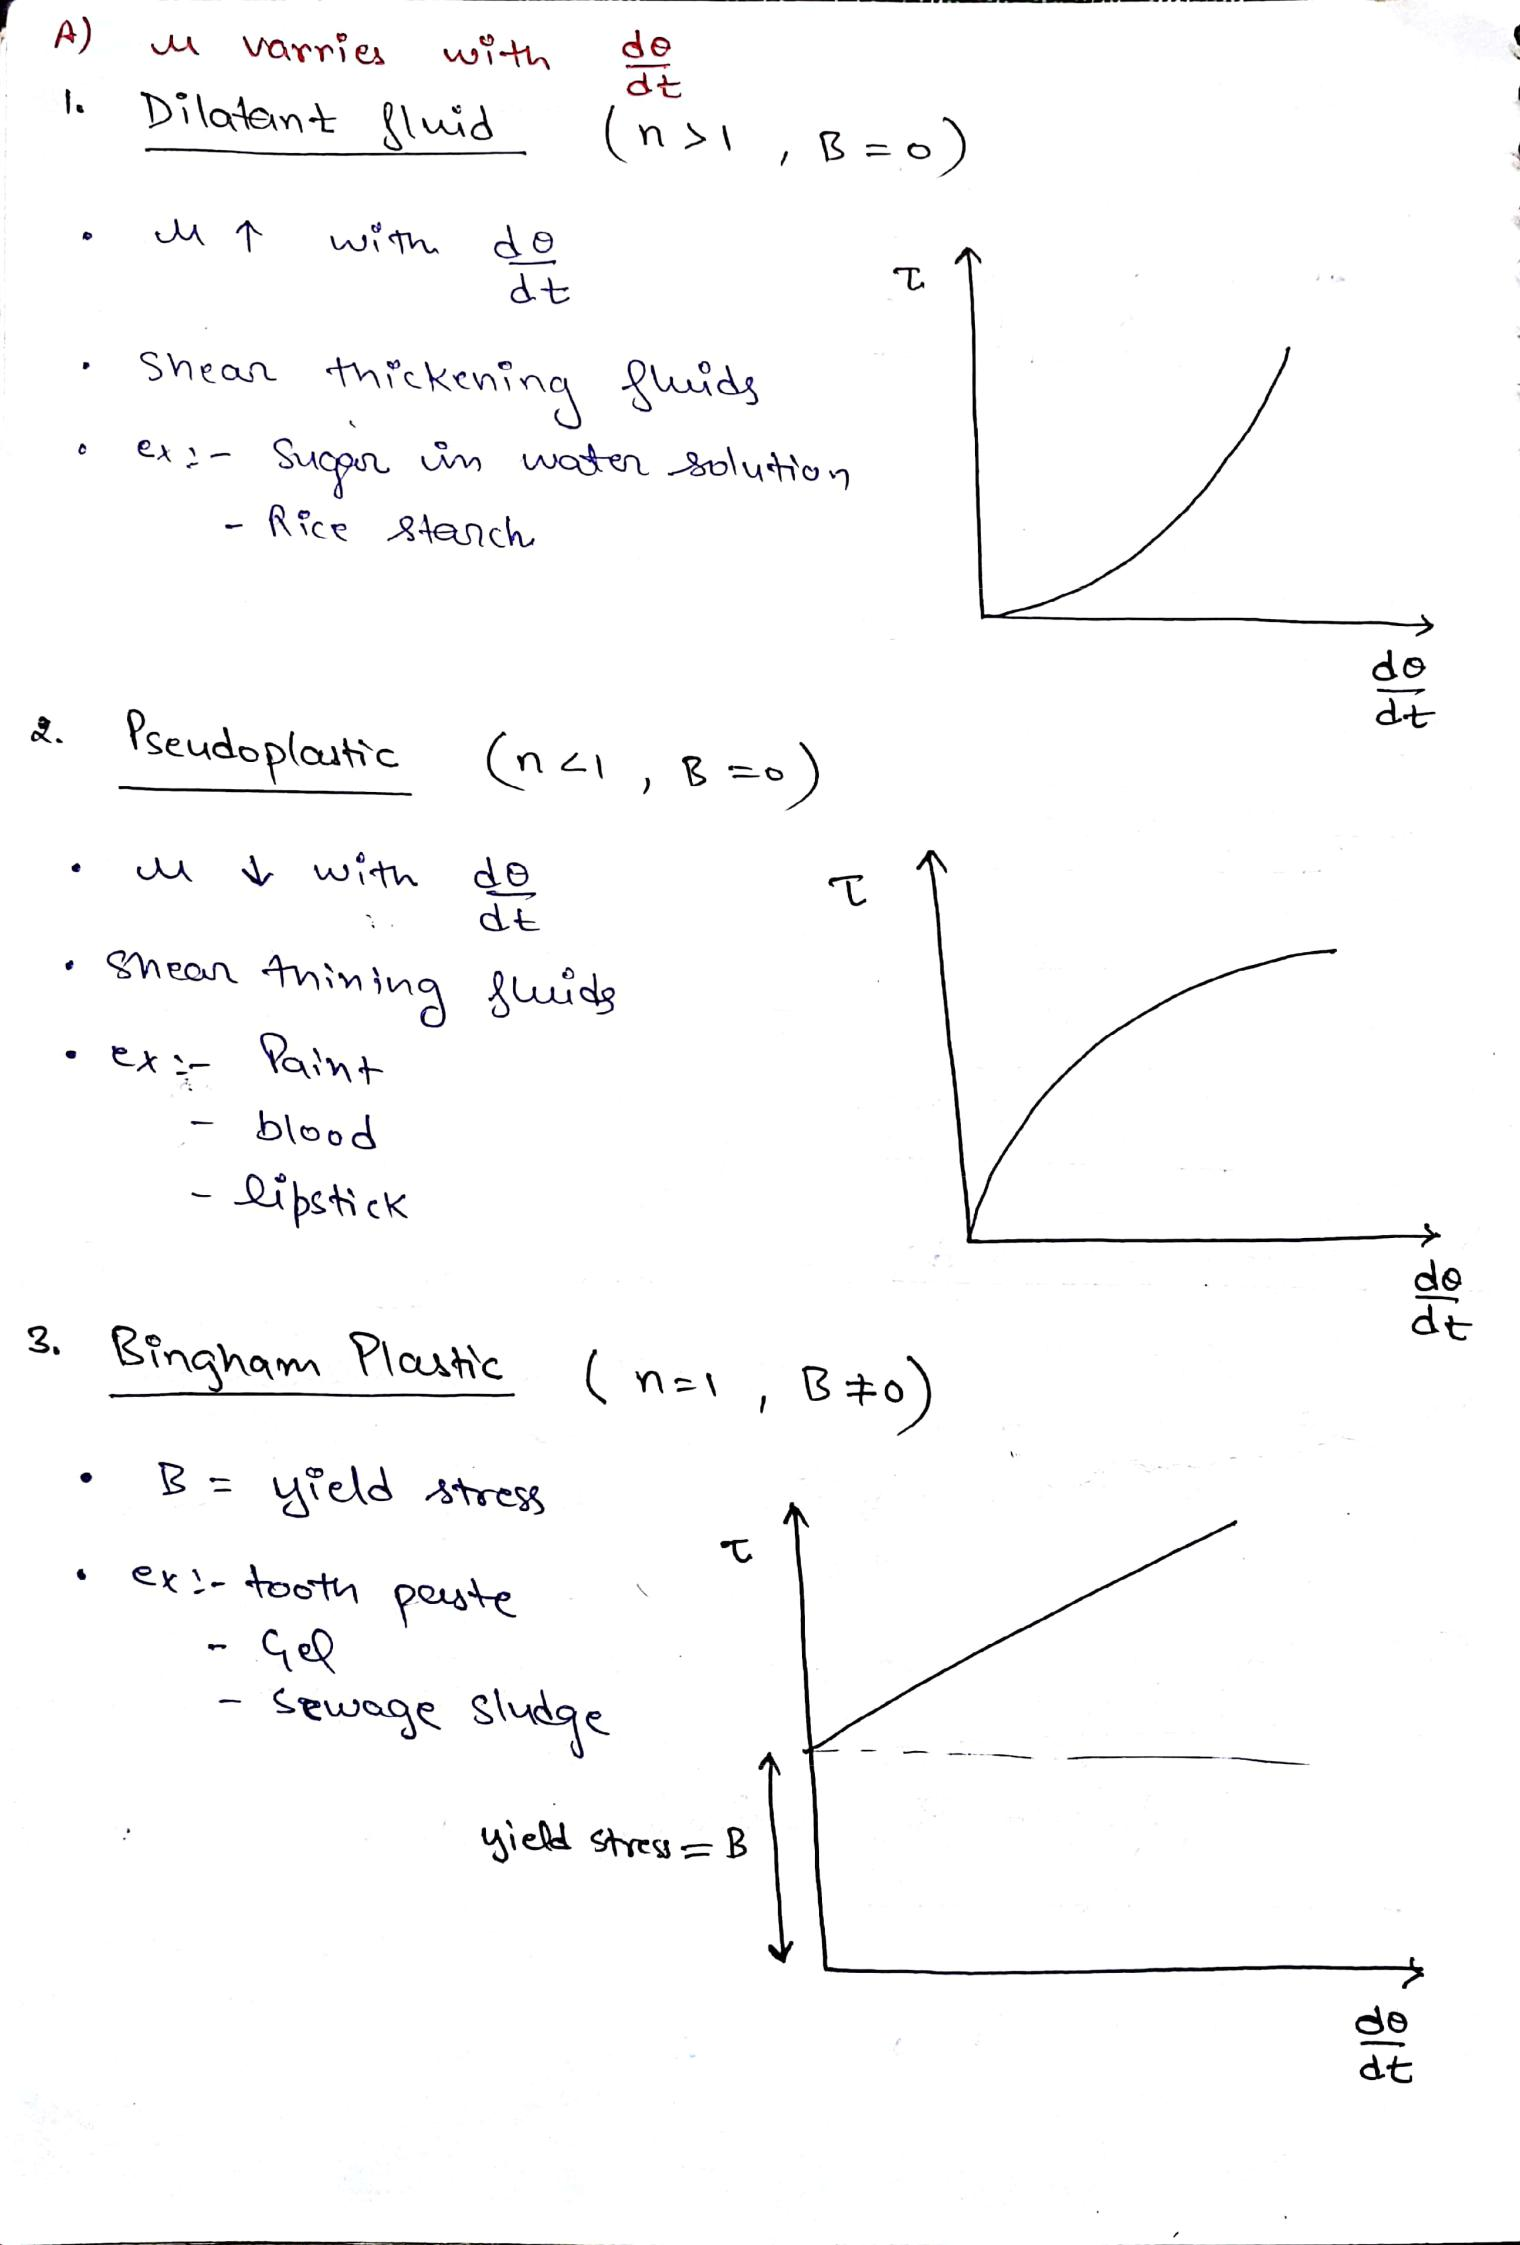 A) μ varries with dθ/dt
1. Dilatant fluid (n>1, B=0)
• μ ↑ with dθ/dt
τ
• Shear thickening fluids
• ex:- Sugar in water solution
- Rice starch
dθ/dt
2. Pseudoplastic (n<1, B=0)
• μ ↓ with dθ/dt
τ
• Shear thining fluids
• ex:- Paint
- blood
- lipstick
dθ/dt
3. Bingham Plastic (n=1, B≠0)
• B = yield stress
τ
• ex:- tooth paste
- Gel
- Sewage sludge
yield stress = B
dθ/dt